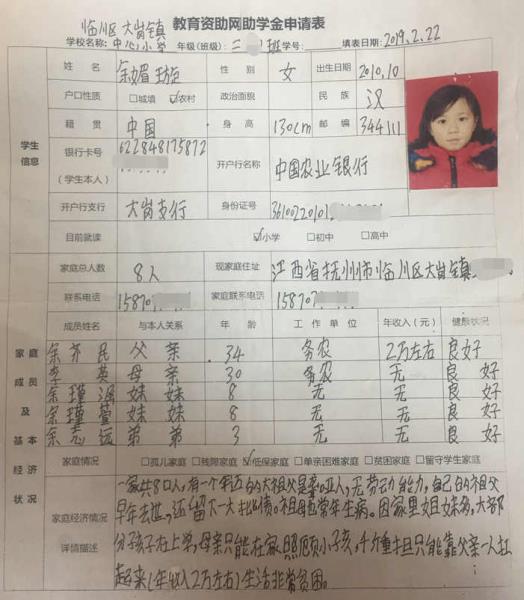 教育资助网助学金申请表
学校名称:临川区大岗镇中心小学 年级(班级):二 班 学号: 填表日期:2019.2.22
姓 名 余媚 性 别 女 出生日期 2010.10
户口性质 □城填 ☑农村 政治面貌 民 族 汉
籍 贯 中国 身 高 130cm 邮 编 344111
学生信息
银行卡号(学生本人) 622848175872 开户行名称 中国农业银行
开户行支行 大岗支行 身份证号 3610022010
目前就读 ☑小学 □初中 □高中
家庭总人数 8人 现家庭住址 江西省抚州市临川区大岗镇
联系电话 15870 家庭联系电话 15870
成员姓名 与本人关系 年 龄 工 作 单 位 年收入(元) 健康状况
余 民 父亲 34 务农 2万左右 良好
李 英 母亲 30 务农 无 良好
余瑾 妹妹 8 无 无 良好
余瑾萱 妹妹 8 无 无 良好
余志远 弟弟 3 无 无 良好
家庭成员及基本经济状况
家庭情况 □孤儿家庭 □残障家庭 ☑低保家庭 □单亲困难家庭 □贫困家庭 □留守学生家庭
家庭经济情况详情描述
一家共8口人,有一个年迈的大祖父是聋哑人,无劳动能力,自己的祖父
早年去世,还留下一大批债。祖母也常年生病。因家里姐妹多,大部
分孩子在上学,母亲只能在家照顾小孩,千斤重担只能靠父亲一人扛
起来(年收入2万左右)生活非常贫困。